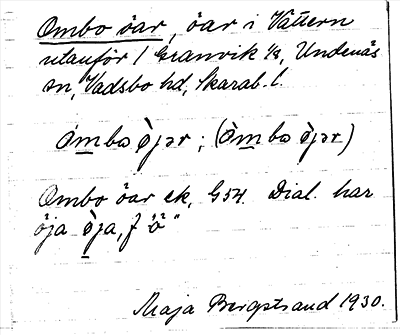 Ombo öar, öar i Vättern
utanför / Granvik 1/8, Undenäs
sn, Vadsbo hd, Skarab. l.
ómbo ø̀jər ; (òmbo ø̀jər)
Ombo öar ek, G54. Dial. har
öja ø̀ja, f "ö"
Maja Bergstrand 1930.